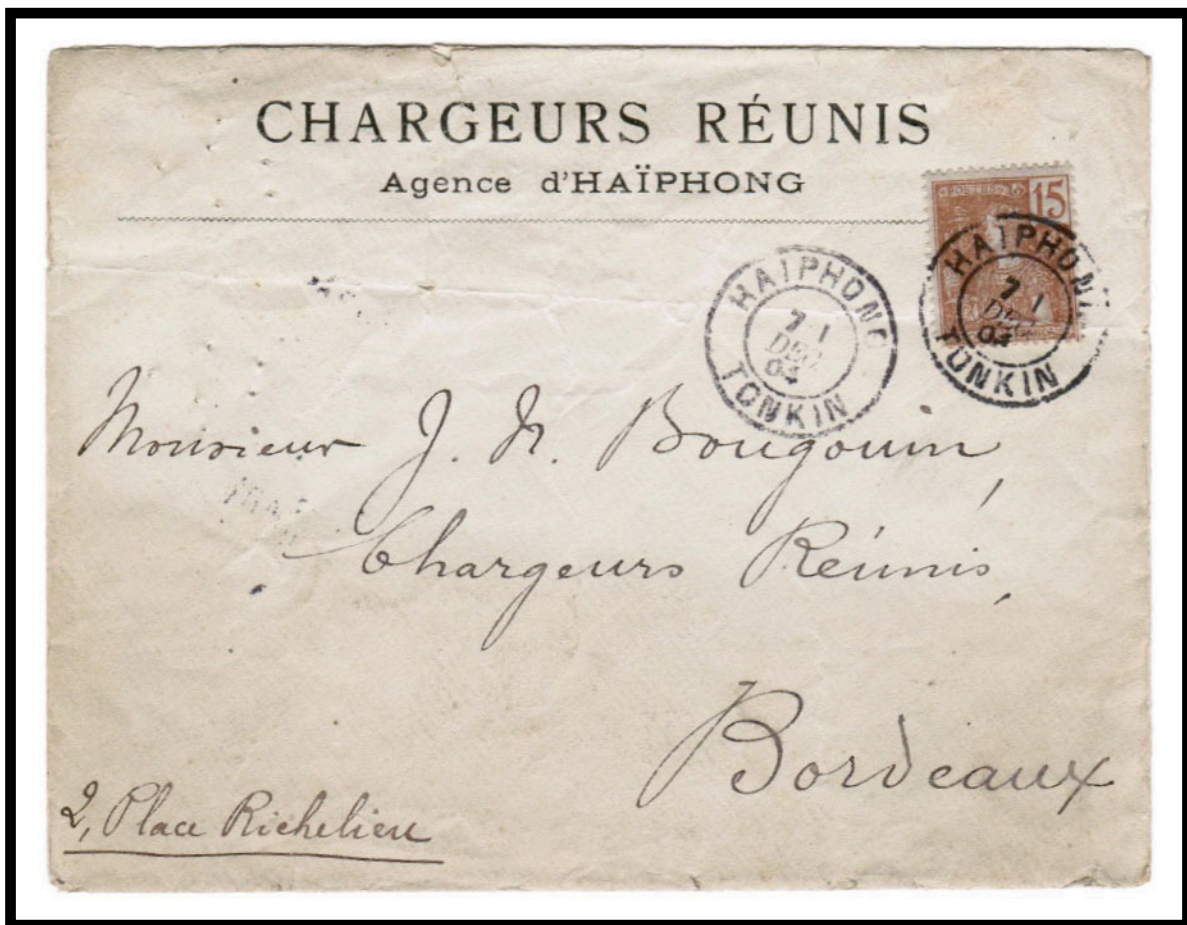 CHARGEURS RÉUNIS
Agence d'HAÏPHONG
POSTES
15
HAÏPHONG
7 1
DEC
04
TONKIN
HAÏPHONG
7 1
DEC
04
TONKIN
Monsieur J. N. Bougouin,
Chargeurs Réunis,
Bordeaux
2, Place Richelieu